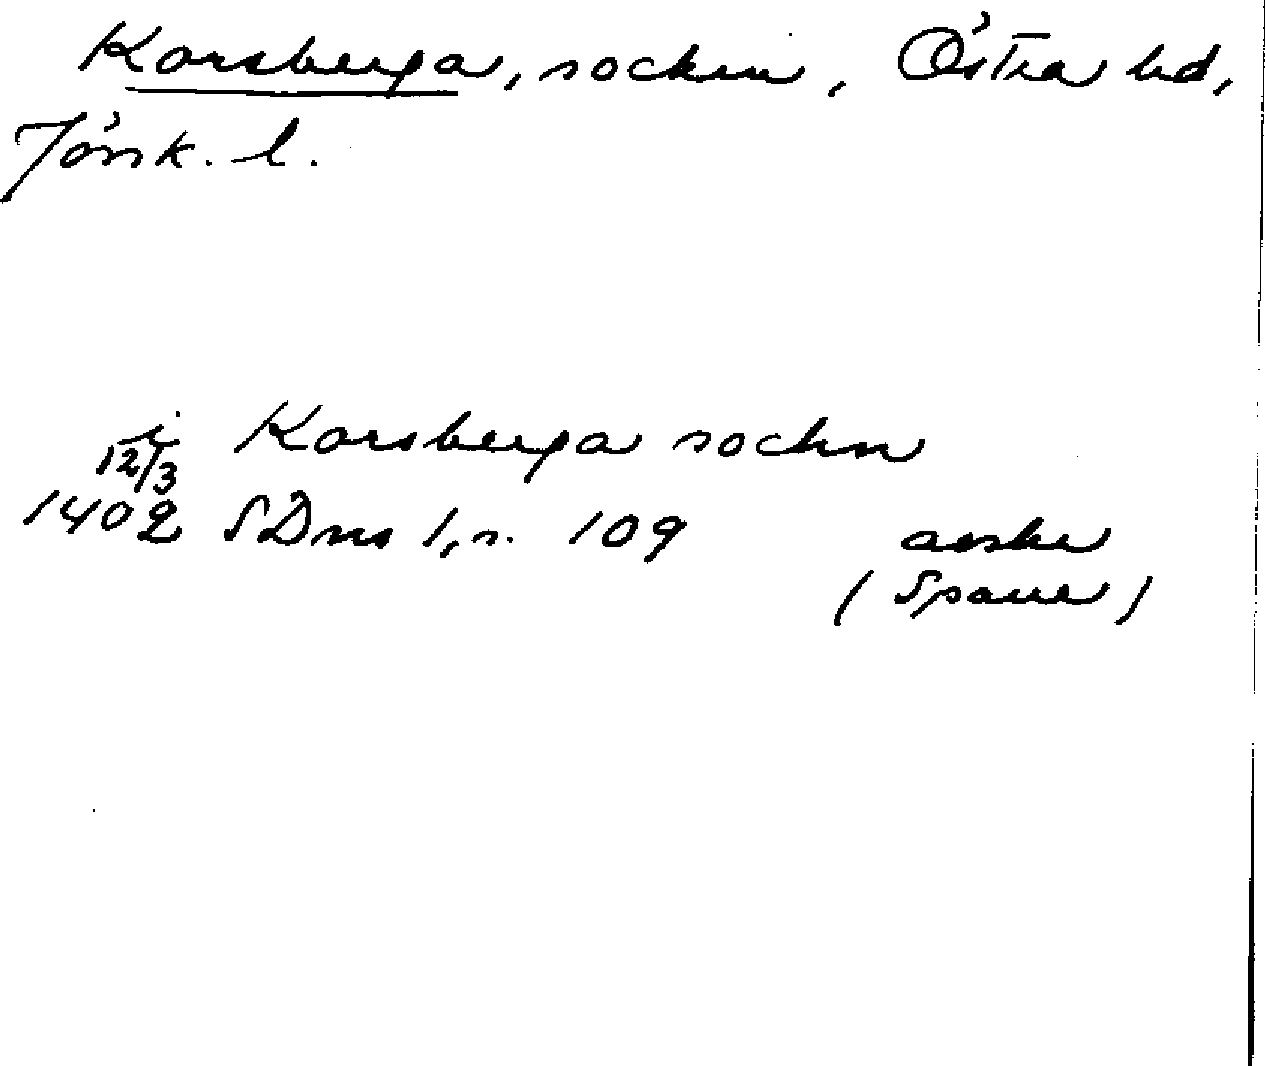 Korsberga, socken, Östra hd,
Jönk. l.
i Korsberga sockn
12/3
1402 SDns 1, s. 109
avskr
(Spara)